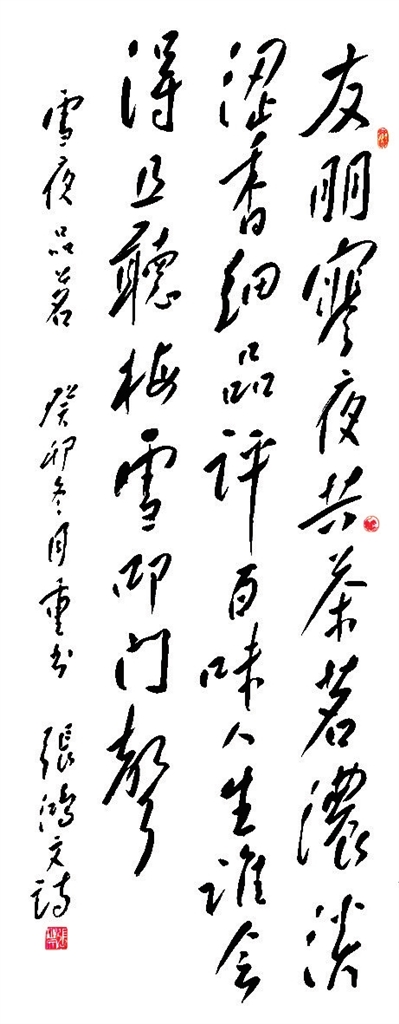 友朋寥夜共茶茗濃淡
涩香细品评百味人生谁会
得且聽梅雪叩门聲
雪夜品茗 癸卯冬月重书 張鴻文詩